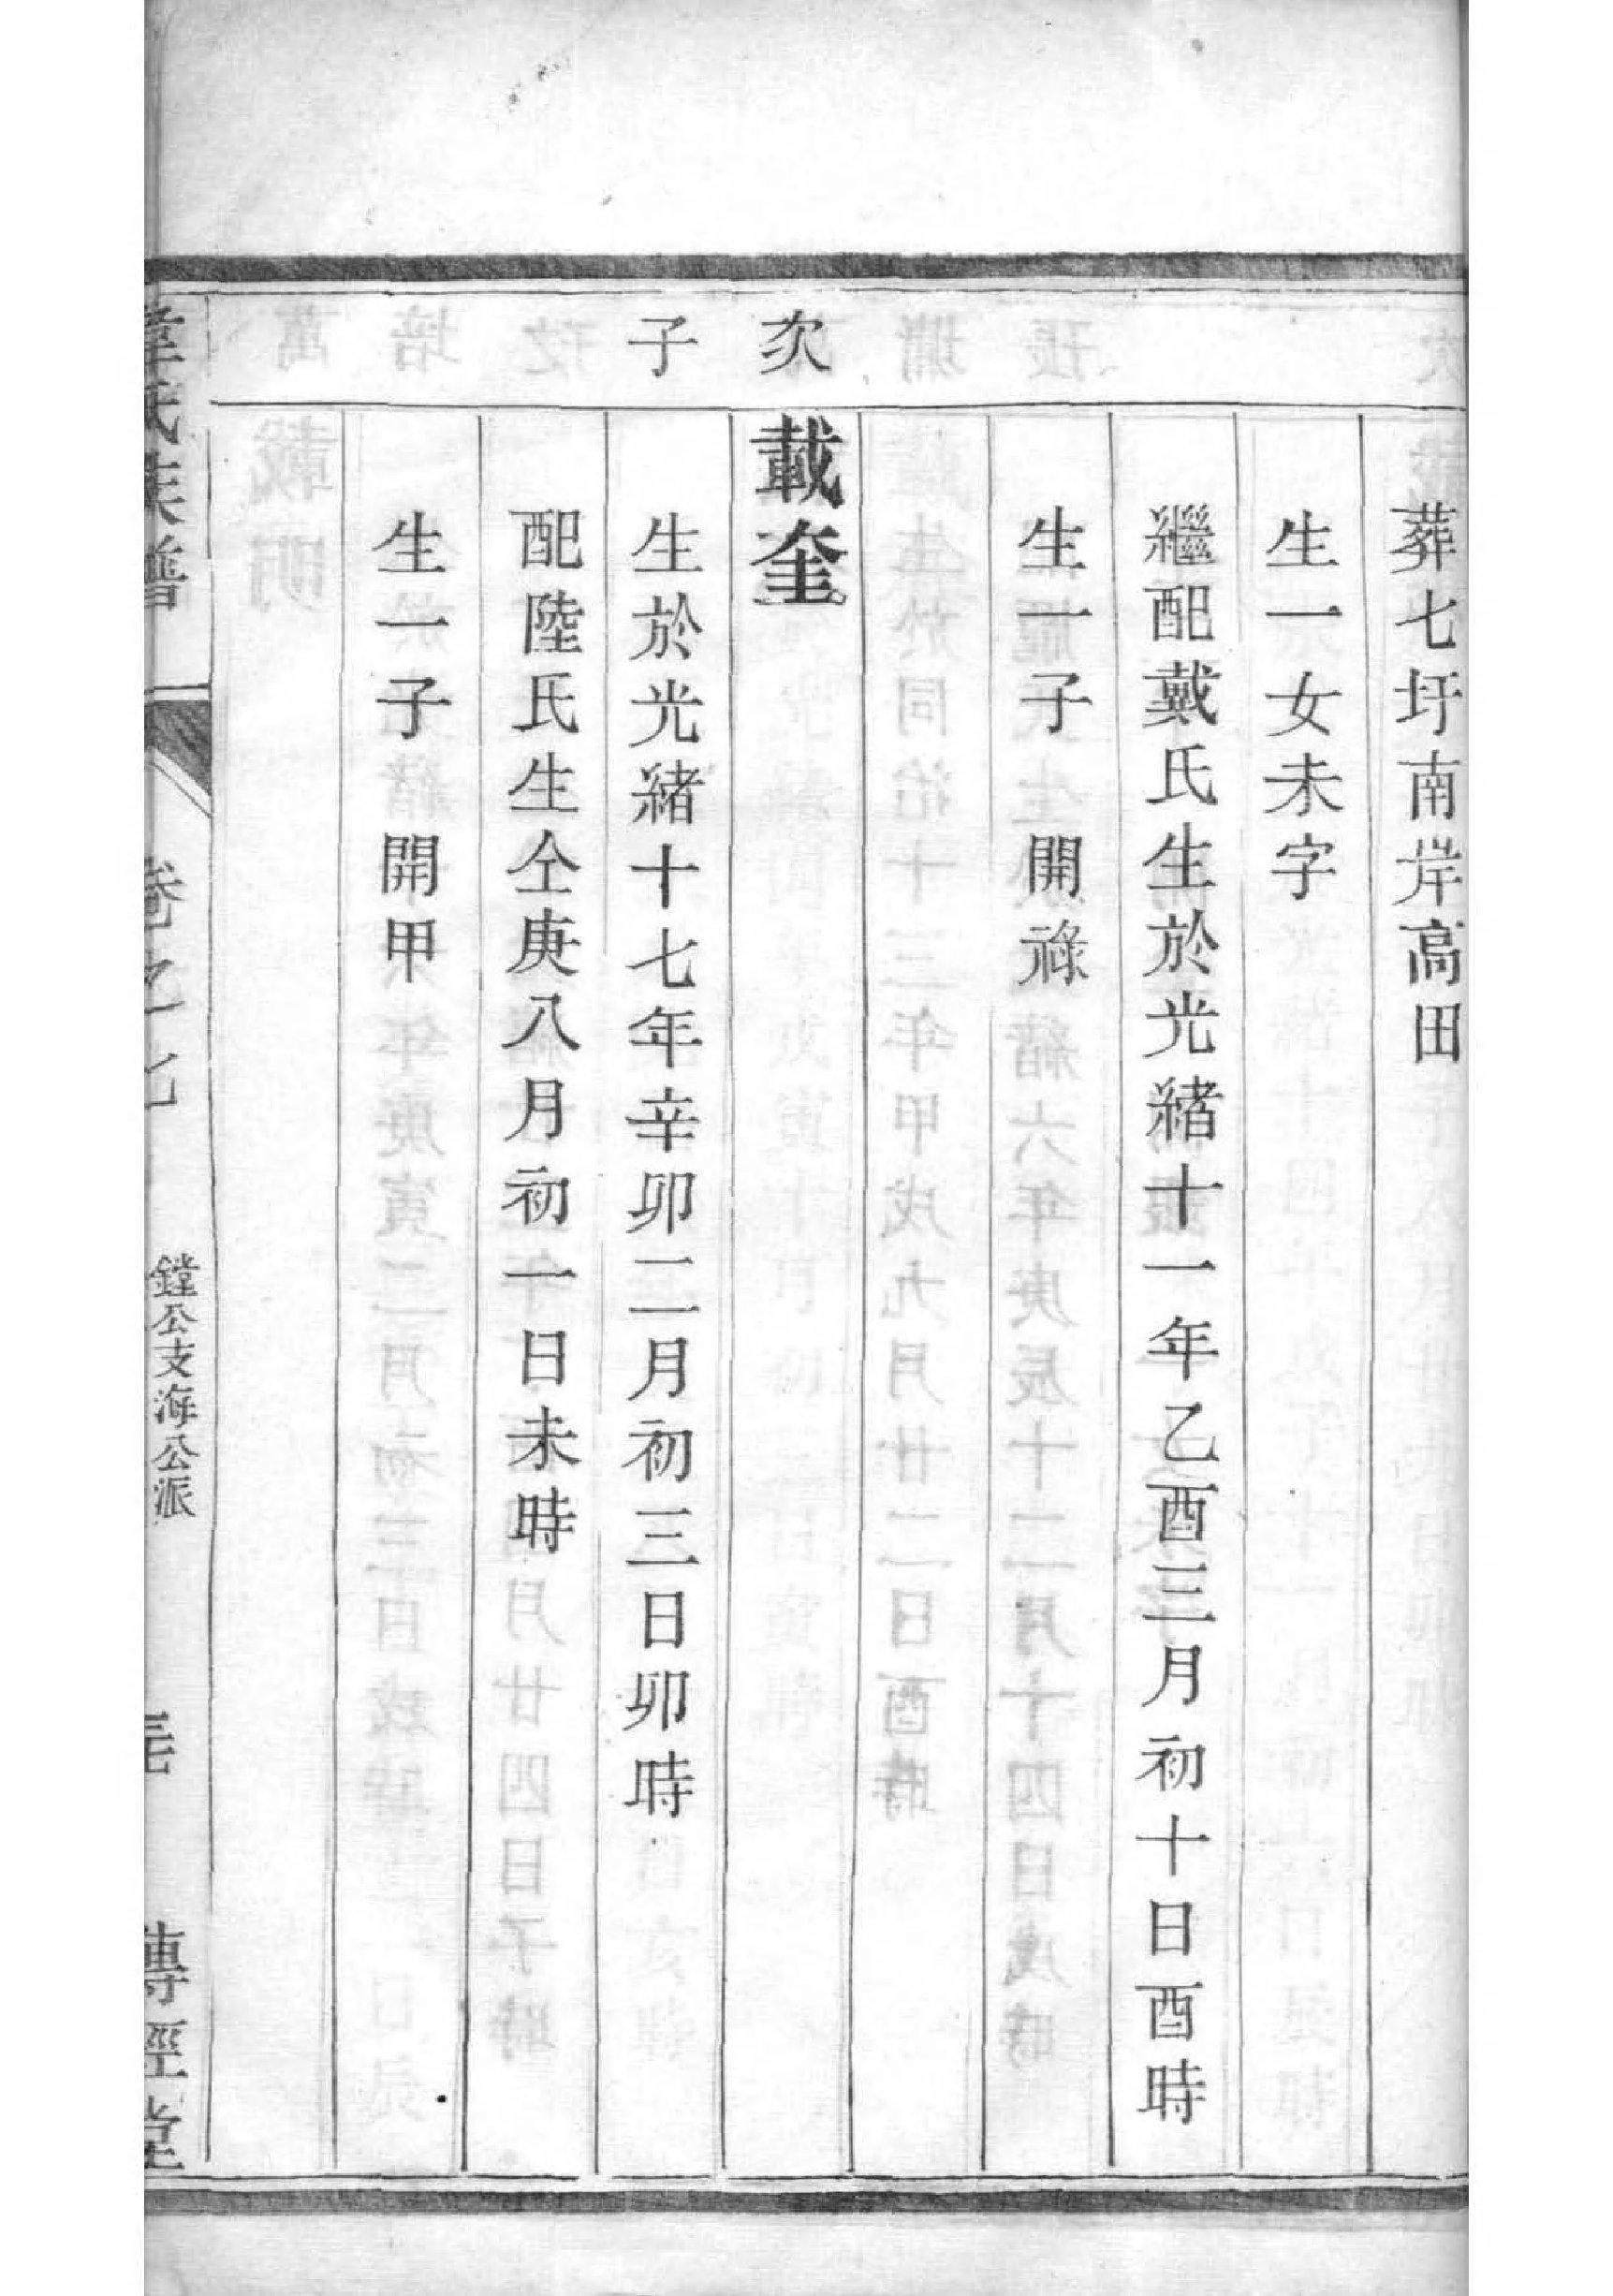 葬七圩南岸高田
生一女未字
繼配戴氏生於光緒十一年乙酉三月初十日酉時
生一子　開祿
次子
載奎
生於光緒十七年辛卯二月初三日卯時
配陸氏生仝庚八月初一日未時
生一子　開甲
章氏族譜
卷之七
鏜公支海公派
傳經堂